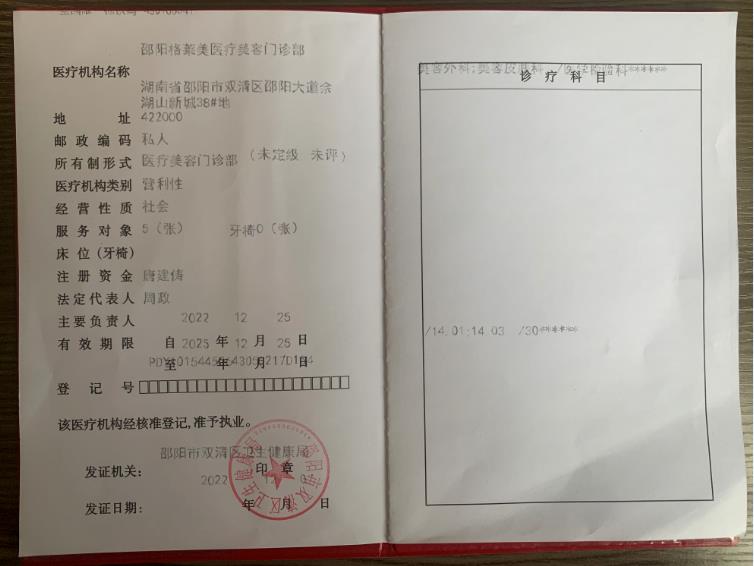 邵阳格莱美医疗美容门诊部
医疗机构名称
湖南省邵阳市双清区邵阳大道佘
湖山新城38#地
地 址 422000
邮政编码 私人
所有制形式 医疗美容门诊部 (未定级 未评)
医疗机构类别 营利性
经营性质 社会
服务对象 5 (张) 牙椅0 (张)
床位(牙椅)
注册资金 唐建俦
法定代表人 周政
主要负责人 2022 12 25
有效期限 自 2025 年 12 月 25 日
至 年 月 日
登记号
该医疗机构经核准登记,准予执业。
邵阳市双清区卫生健康局
发证机关: 印章
2022
发证日期: 年 月 日
美容外科;美容皮肤科 /医学检验科******
诊疗科目
/14.01;14.03 /30******